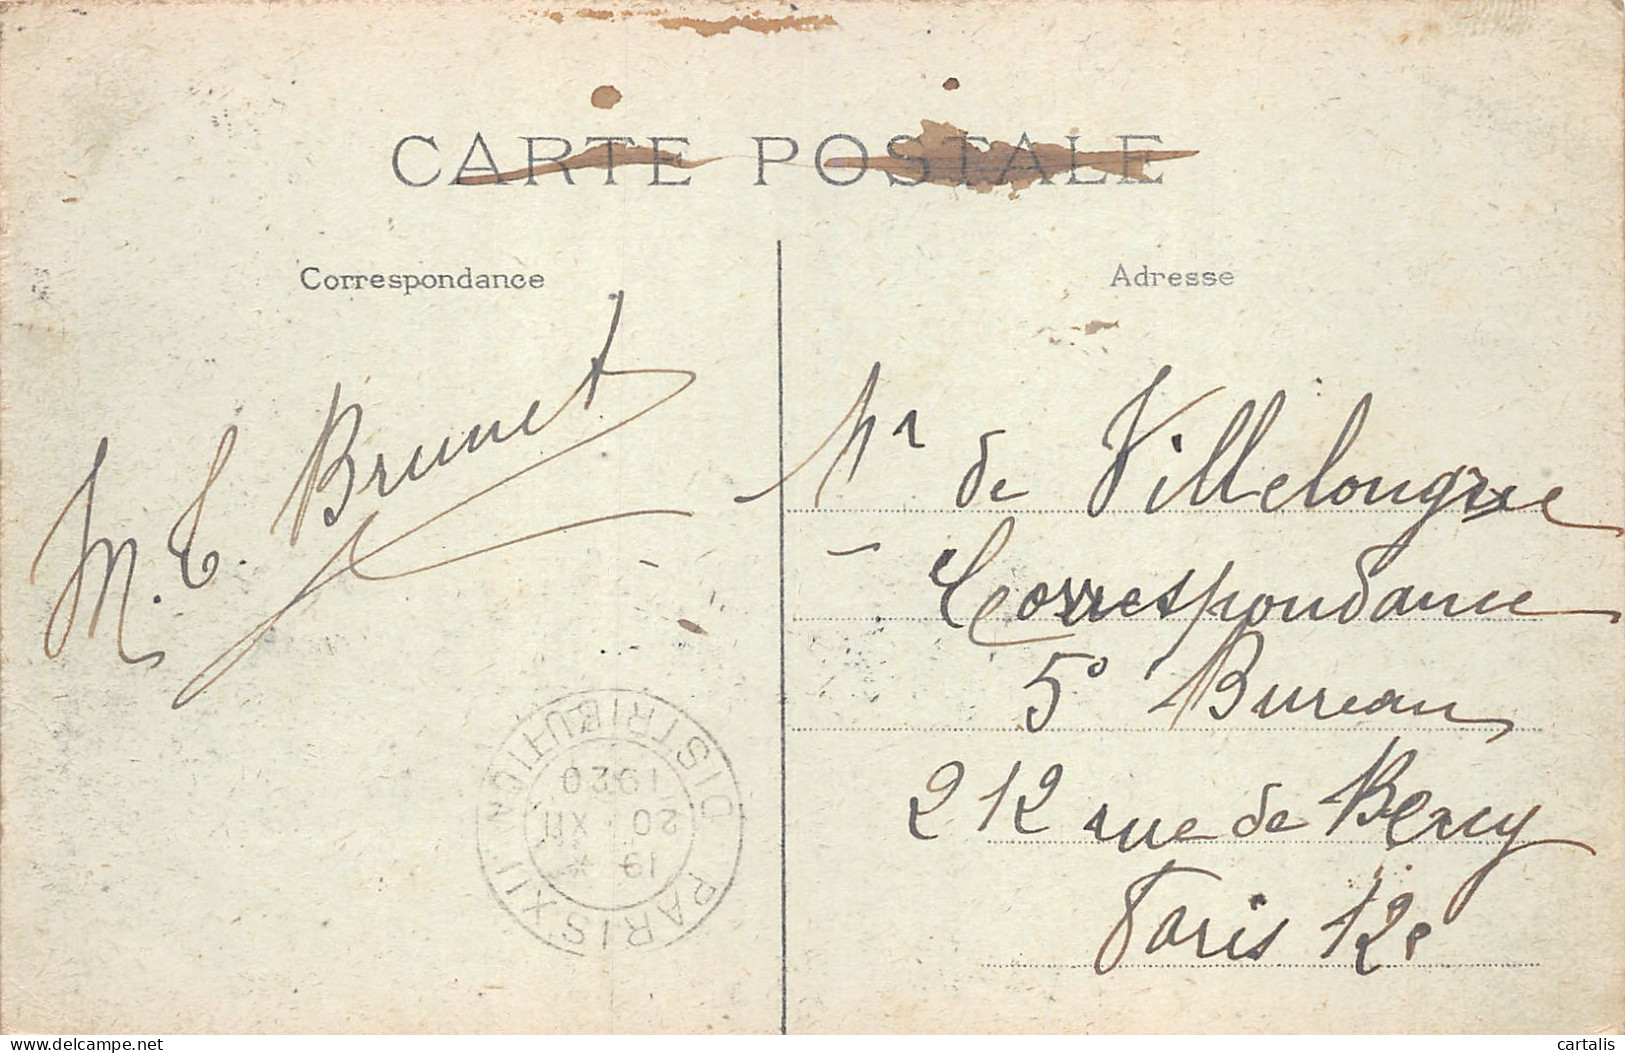 CARTE POSTALE
Correspondance
Adresse
M. C. Brunet
Mr de Villelongue
Correspondance
5° Bureau
212 rue de Bercy
Paris 12e
PARIS XII DISTRIBUTION
19 *
20 XII
1920
delcampe.net
cartalis